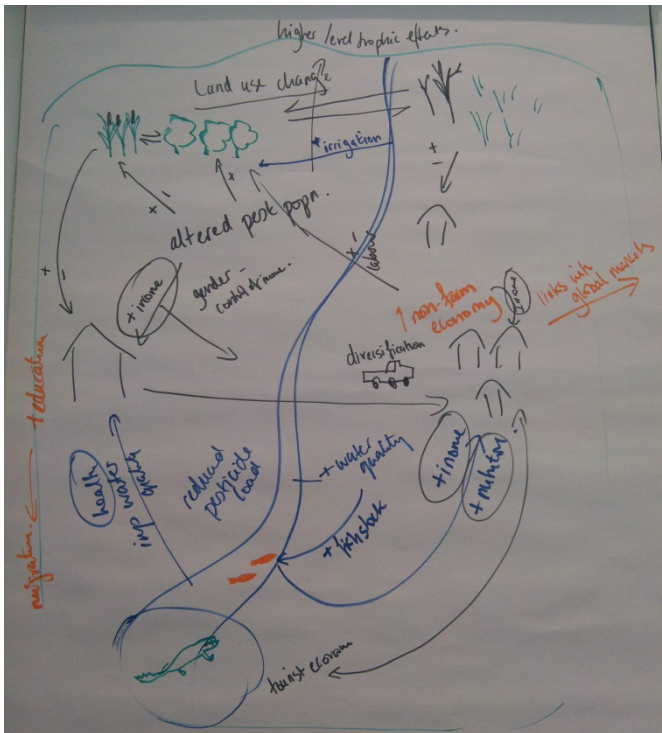 higher level trophic effects.
Land use change
* irrigation
+
-
+
-
+
altered pest popn.
+
-
labour
+
-
gender -
control of income.
+ income
↑ non-farm
economy
income
links with
global markets
diversification
+ education
migration
health
imp water
quality
reduced
pesticide
load
+ water
quality
+ fish stock
+ income
+ nutrition
tourist economy